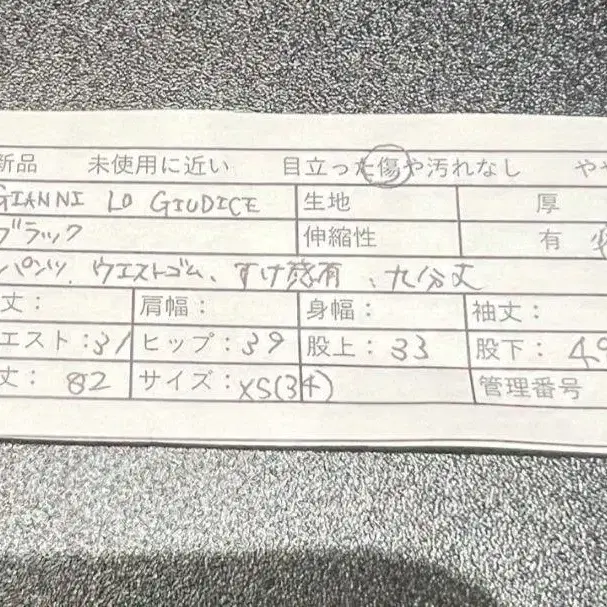 新品 未使用に近い 目立った傷や汚れなし やや
GIANNI LO GIUDICE 生地 厚
ブラック 伸縮性 有
パンツ、ウエストゴム、すけ感有、九分丈
丈： 肩幅： 身幅： 袖丈：
エスト：31 ヒップ：39 股上：33 股下：49
丈：82 サイズ：XS(34) 管理番号